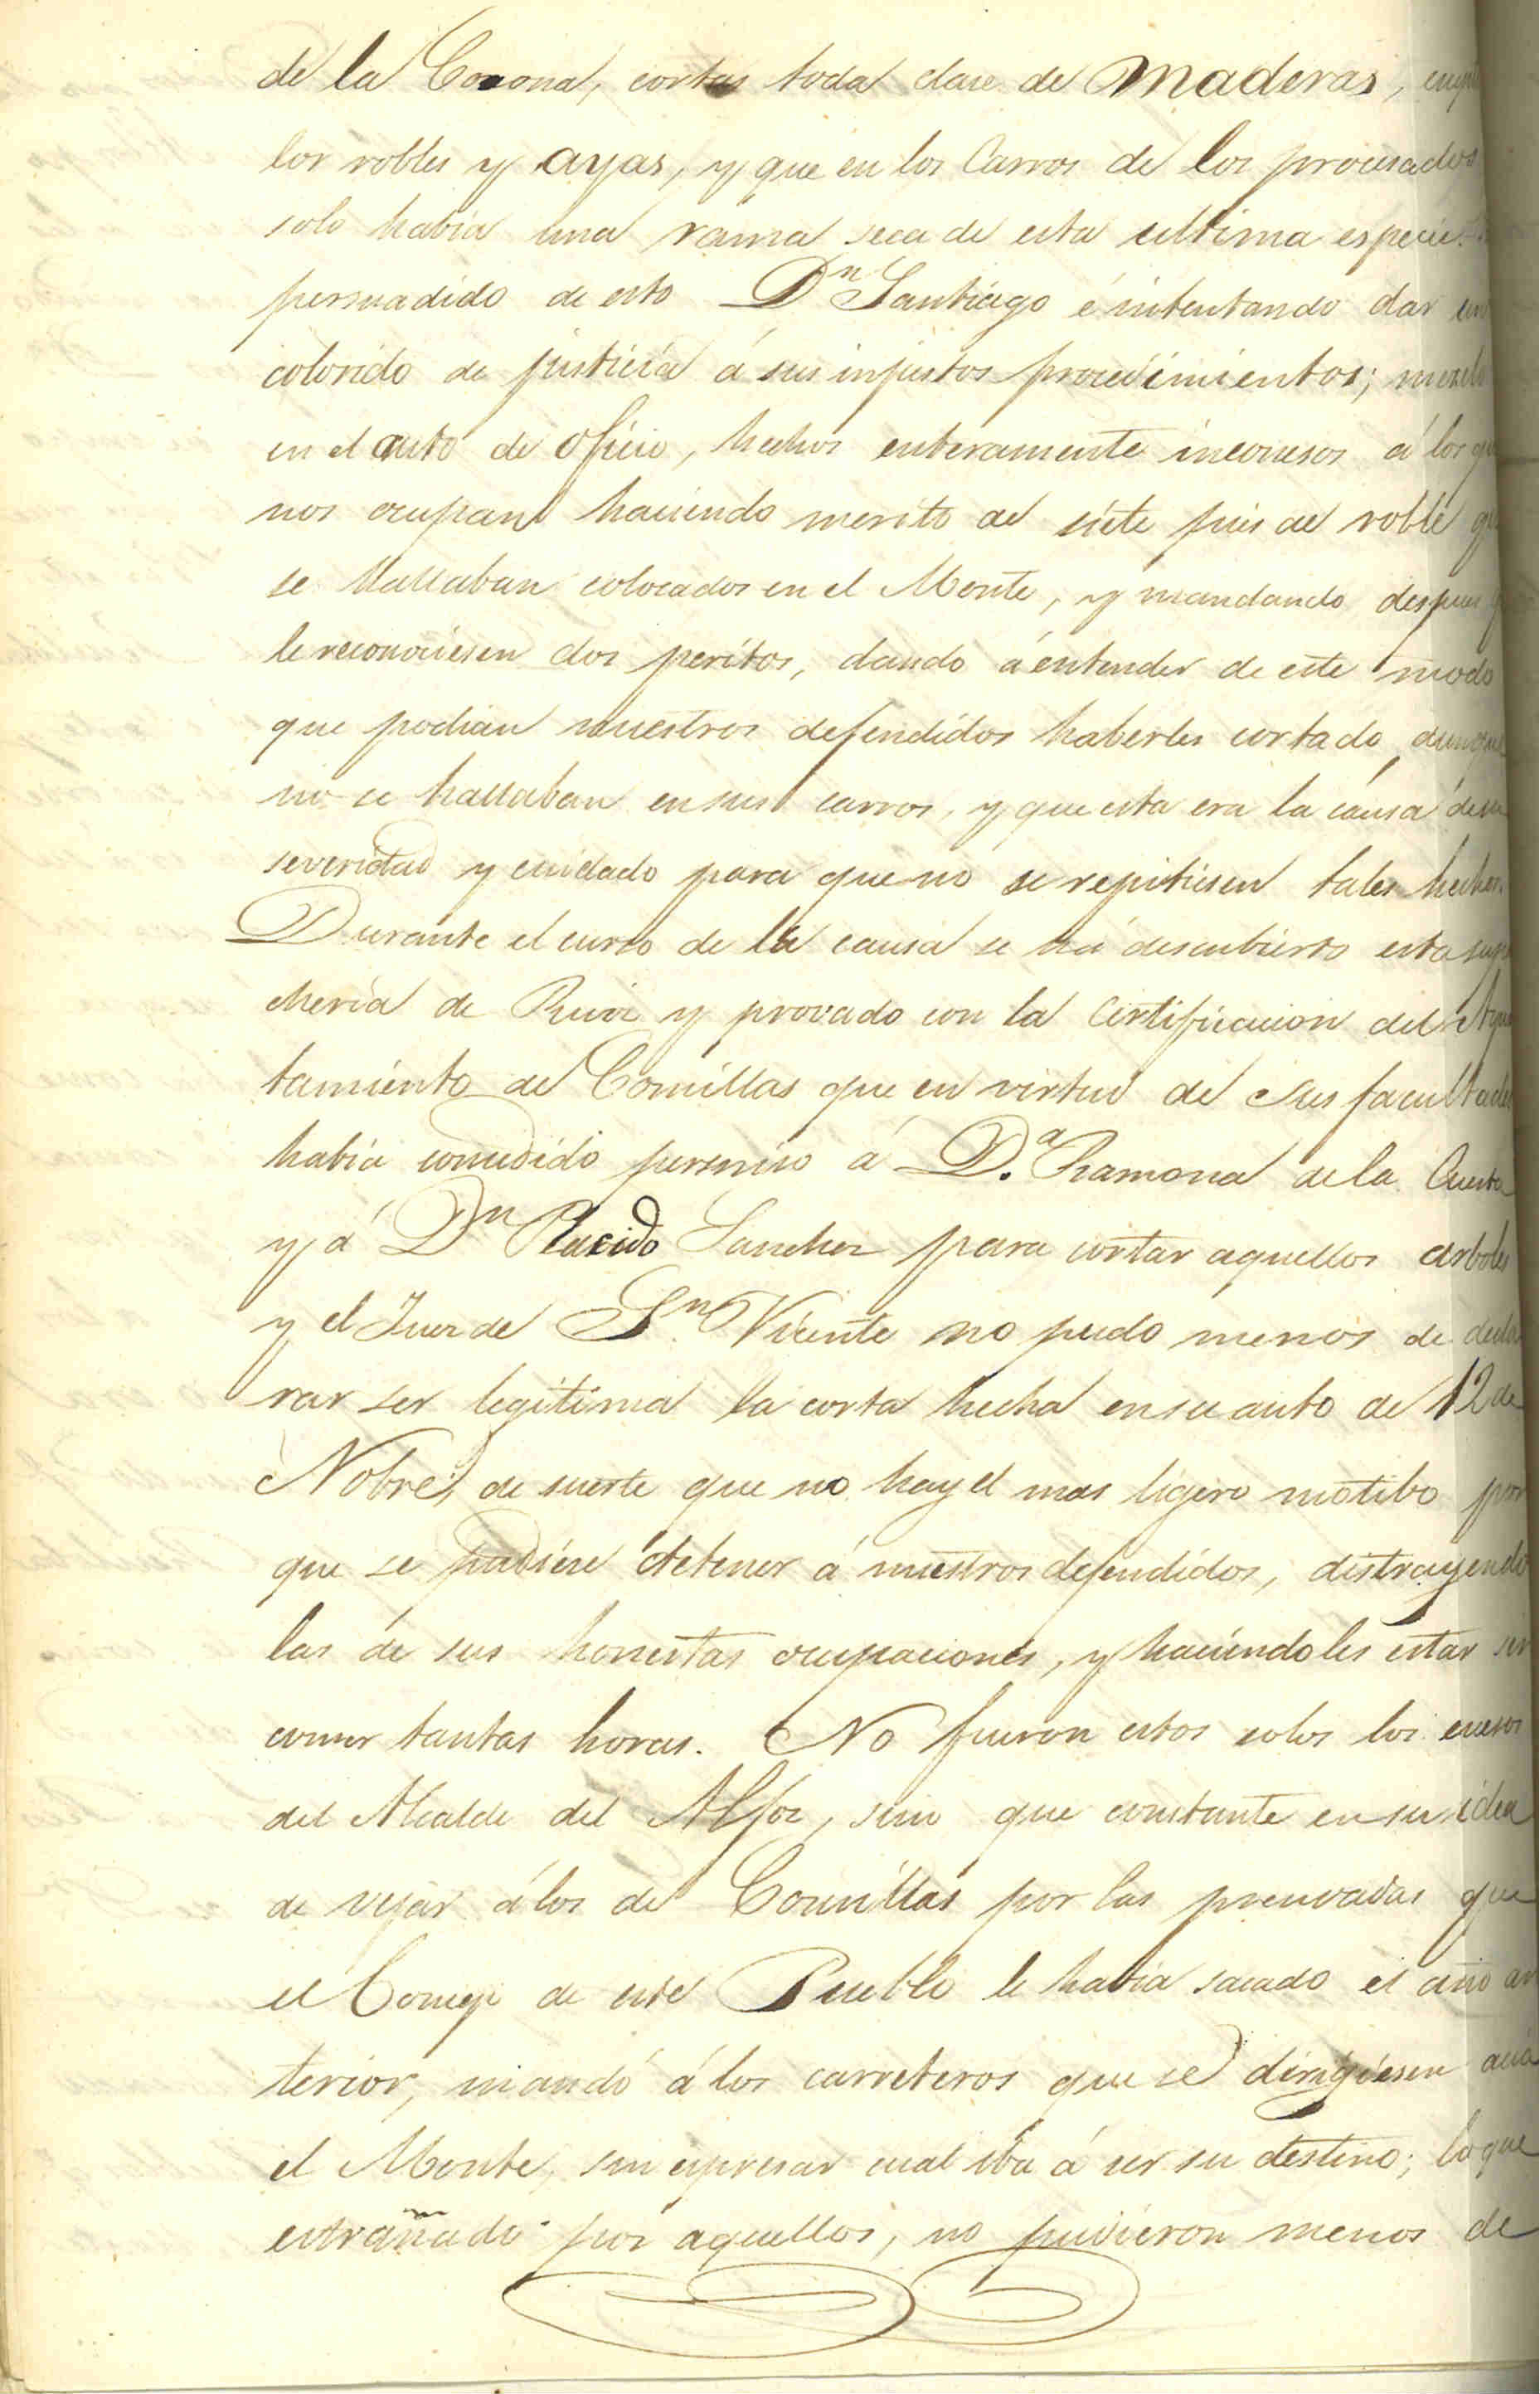 de la Corona, cortar toda clase de maderas,
los robles y ayas, y que en los Carros de los procesados
solo habia una rama seca de esta ultima especie.
persuadido de esto Dn Santiago é intentando dar un
colorido de justicia á sus injustos procedimientos; mezcla
en el auto de oficio, hechos enteramente inconexos á los que
nos ocupan haciendo merito de siete pies de roble que
se hallaban colocados en el Monte, y mandando despues
le reconociesen dos peritos, dando á entender de este modo
que podian nuestros defendidos haberles cortado, aunque
no se hallaban en sus carros, y que esta era la causa de su
severidad y cuidado para que no se repitiesen tales hechos.
Durante el curso de la causa se há descubierto esta super
cheria de Ruiz y provado con la Certificacion del Ayun
tamiento de Comillas que en virtud de sus facultades
habia concedido permiso á D.a Ramona de la Cuesta
y á Dn Placido Sanchez para cortar aquellos arboles
y el Juez de Sn. Vicente no pudo menos de decla
rar ser legitima la corta hecha en su auto de 12 de
Nobre, de suerte que no hay el mas ligero motibo por
que se pudiese detener á nuestros defendidos, distrayendo
las de sus honestas ocupaciones, y haciendoles estar sin
comer tantas horas. No fueron estos solos los excesos
del Alcalde del Alfoz, sino que constante en su idea
de vejar á los de Comillas por las prendadas que
el Concejo de este Pueblo le habia sacado el año an
terior, mandó á los carreteros que se dirigiesen acia
el Monte, sin espresar cual iba á ser su destino; lo que
estrañado por aquellos, no pudieron menos de